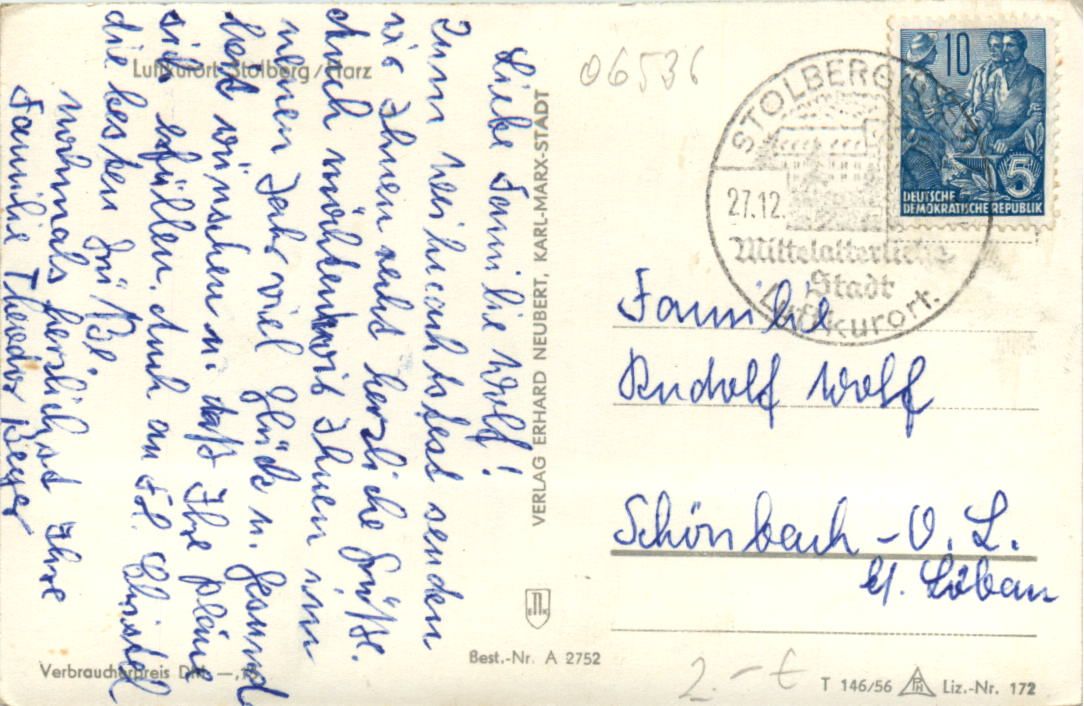 Luftkurort Stolberg/Harz
Liebe Familie Wolf!
Zum Weihnachtsfest senden
wir Ihnen recht herzliche Grüße.
Auch möchten wir Ihnen im
neuen Jahr viel Glück u. Gesund
heit wünschen u. daß Ihre Pläne
sich erfüllen. Auch an Frl. Christel
die besten Grüße.
Nochmals herzlichst Ihre
Familie Theodor Beyer
VERLAG ERHARD NEUBERT, KARL-MARX-STADT
Verbraucherpreis DM —,
Best.-Nr. A 2752
06536
STOLBERG
27.12.
Mittelalterliche
Stadt
Luftkurort.
10
5
DEUTSCHE
DEMOKRATISCHE REPUBLIK
Familie
Rudolf Wolf
Schönbach-O.L.
b/. Löbau
2.- €
T 146/56 Liz.-Nr. 172